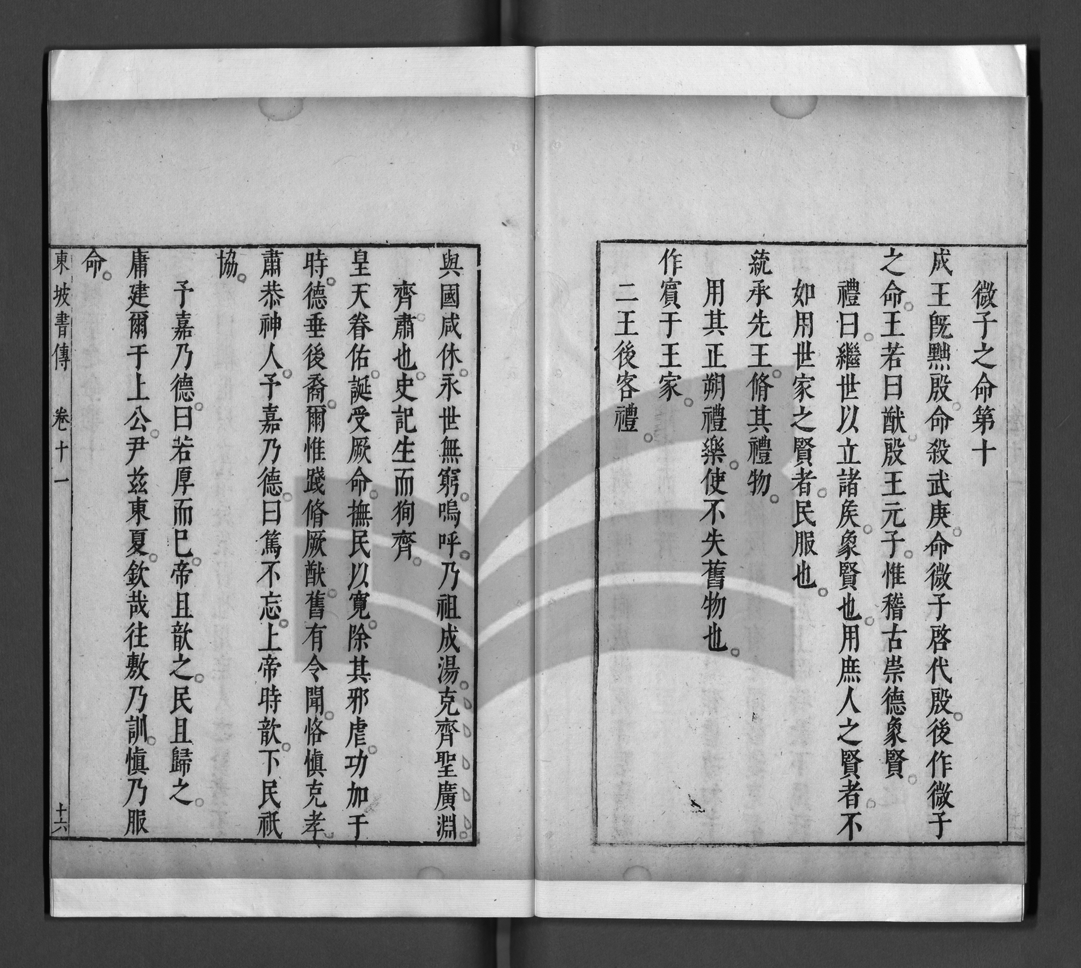 微子之命第十
成王旣黜殷命殺武庚。命微子啓代殷後。作微子
之命。王若曰。猷。殷王元子。惟稽古崇德象賢。
禮曰。繼世以立諸矦。象賢也。用庶人之賢者。不
如用世家之賢者。民服也。
統承先王。脩其禮物。
用其正朔禮樂。使不失舊物也。
作賓于王家。
二王後客禮。
與國咸休。永世無窮。嗚呼。乃祖成湯。克齊聖廣淵。
齊肅也。史記生而狥齊。
皇天眷佑。誕受厥命。撫民以寛。除其邪虐。功加于
時。德垂後裔。爾惟踐脩厥猷。舊有令聞。恪愼克孝。
肅恭神人。予嘉乃德。曰篤不忘。上帝時歆。下民祇
協。
予嘉乃德。曰若厚而已。帝且歆之。民且歸之。
庸建爾于上公。尹兹東夏。欽哉往敷乃訓。愼乃服
命。
東坡書傳 卷十一 十六